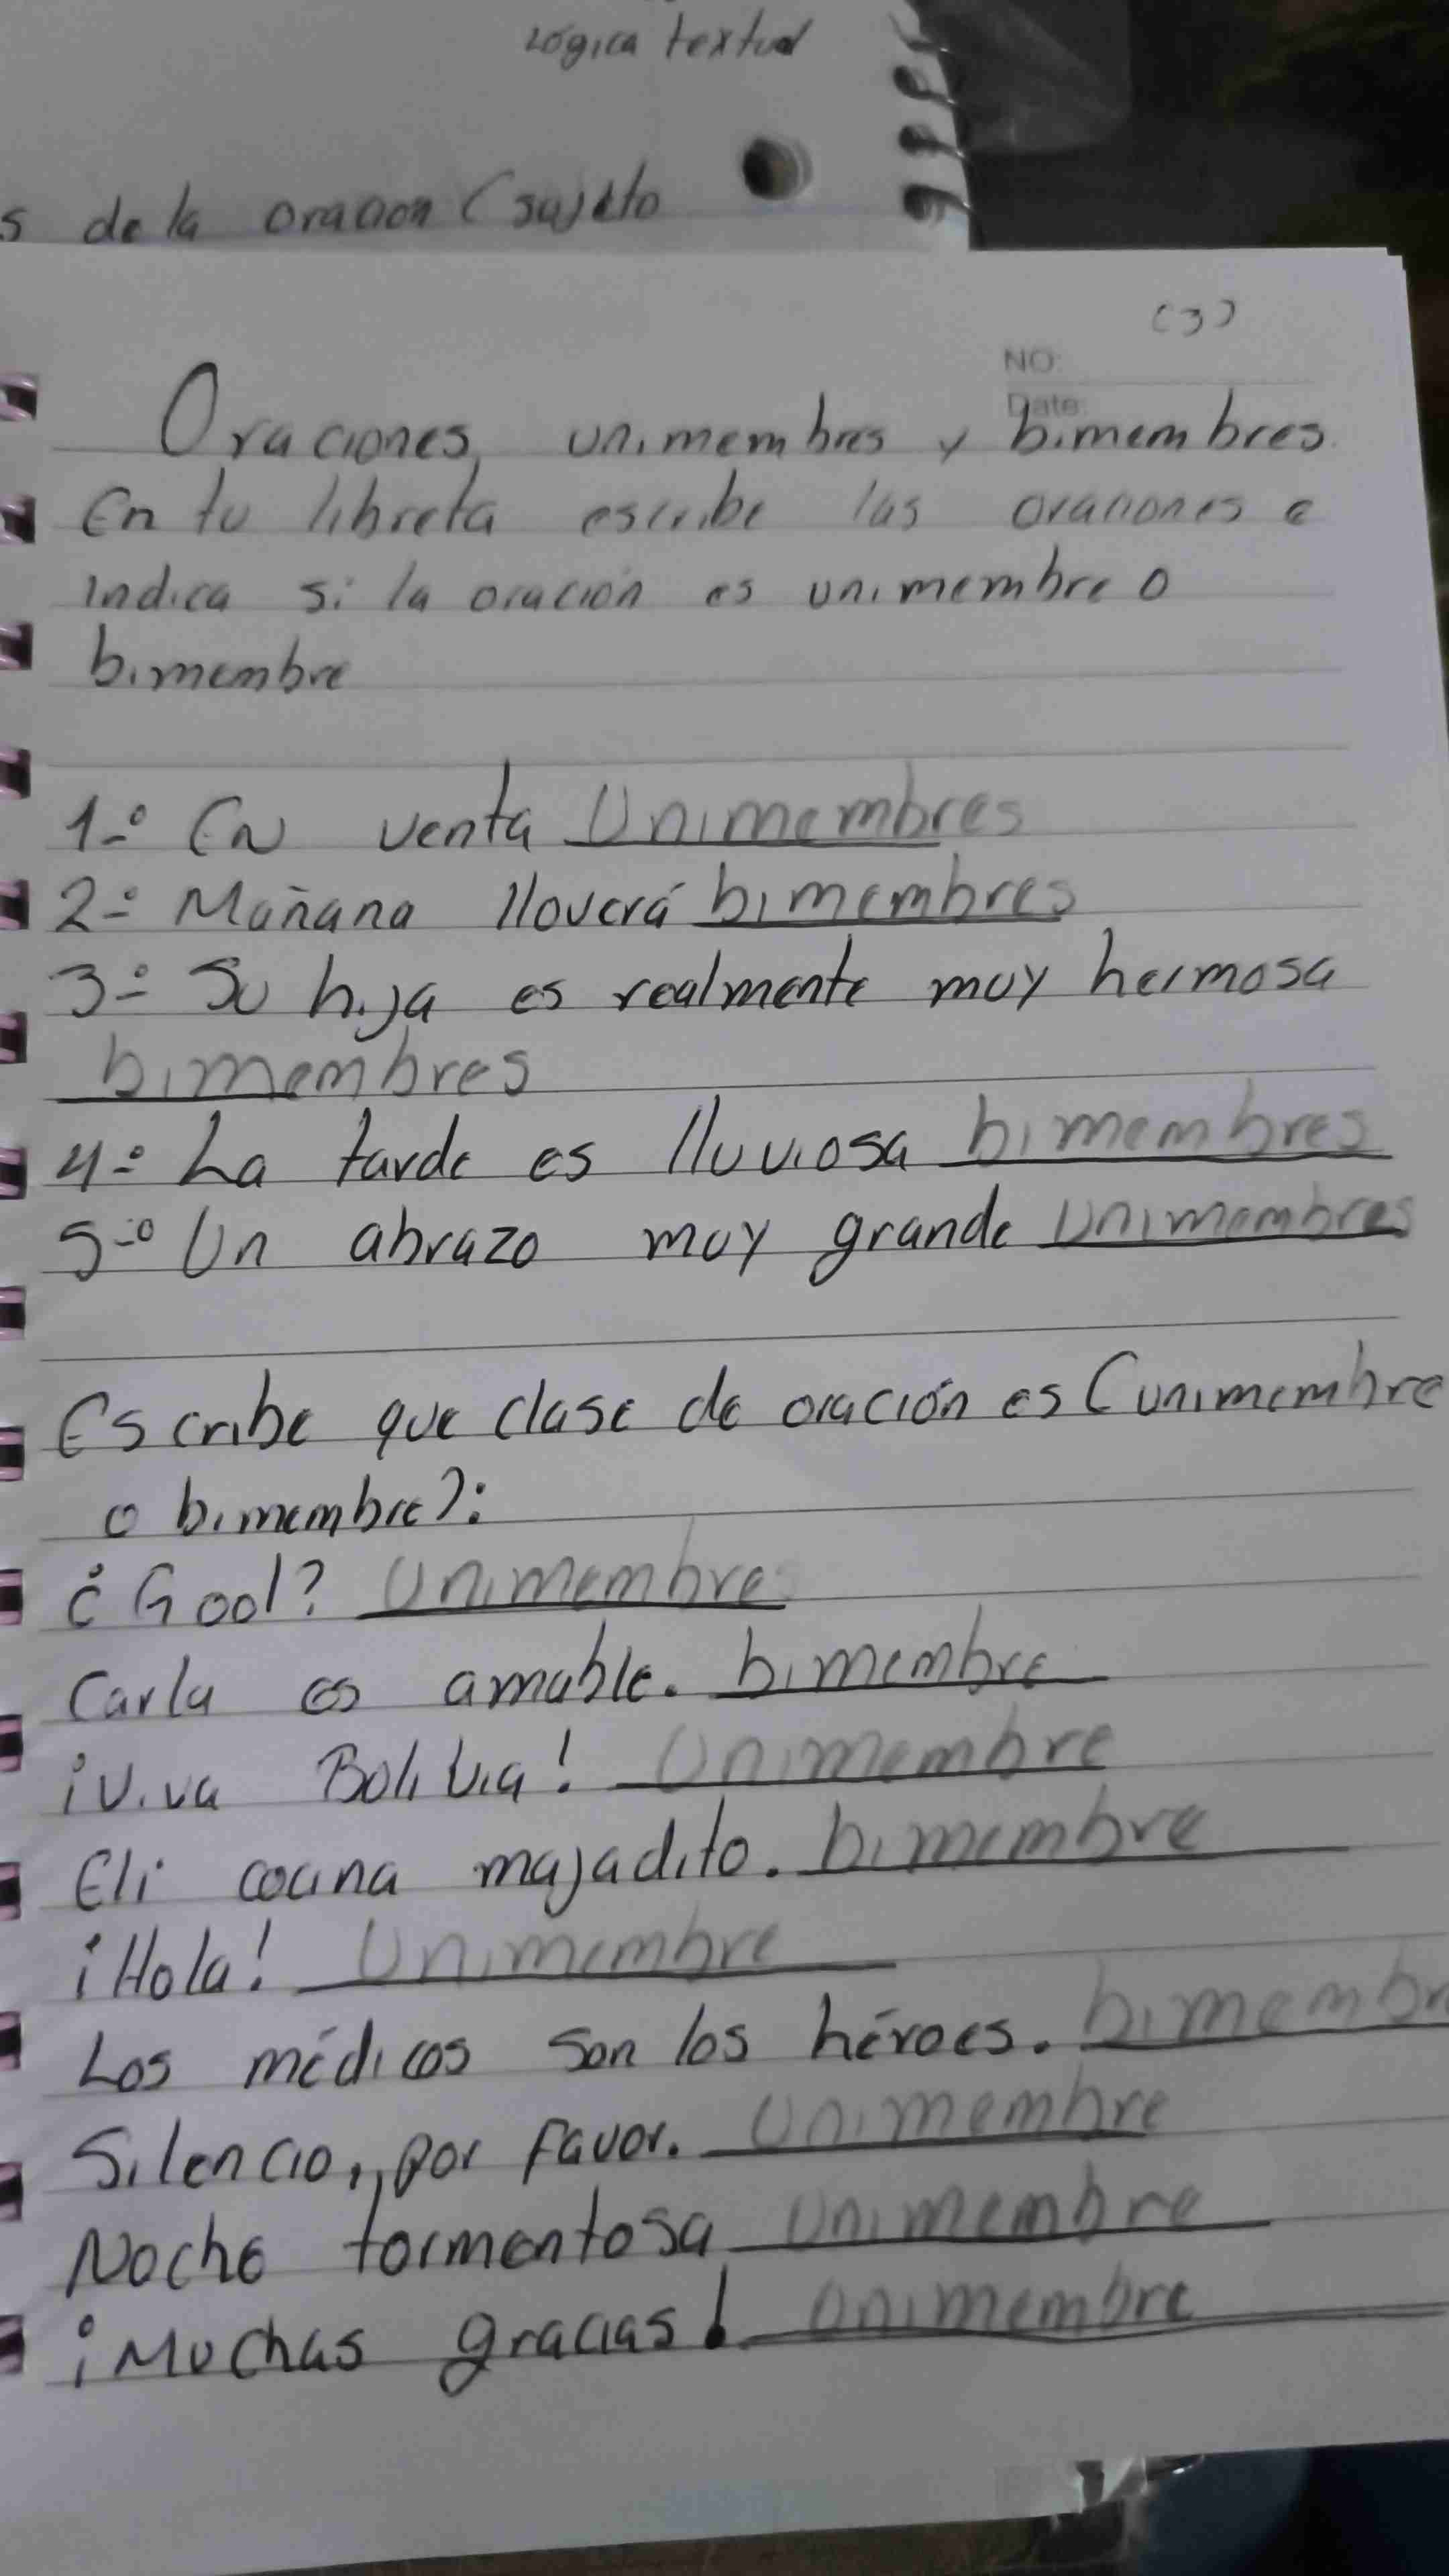 Lógica textual
s de la oracion (sujeto
(3)
NO:
Date:
Oraciones, unimembres y bimembres.
En tu libreta escribe las oraciones e
indica si la oración es unimembre o
bimembre
1-° En venta Unimembres
2-° Mañana lloverá bimembres
3-° Su hija es realmente muy hermosa
bimembres
4-° La tarde es lluviosa bimembres
5-° Un abrazo muy grande unimembres
Escribe que clase de oración es (unimembre
o bimembre):
¿Gool? Unimembres
Carla es amable. bimembre
¡Viva Bolivia! Unimembre
Eli cocina majadito. bimembre
¡Hola! Unimembre
Los médicos son los héroes. bimembr
Silencio, por favor. Unimembre
Noche tormentosa unimembre
¡Muchas gracias! unimembre